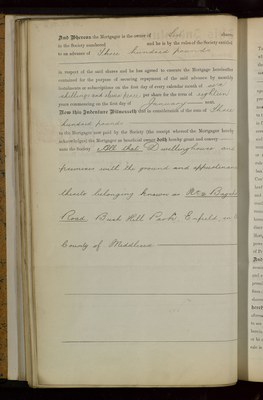 And Whereas the Mortgagor is the owner of Six shares
in the Society numbered and he is by the rules of the Society entitled
to an advance of Three hundred pounds
in respect of the said shares and he has agreed to execute the Mortgage hereinafter
contained for the purpose of securing repayment of the said advance by monthly
instalments or subscriptions on the first day of every calendar month of
shillings and three pence per share for the term of
years commencing on the first day of January next
Now this Indenture Witnesseth that in consideration of the sum of Three
hundred pounds
to the Mortgagor now paid by the Society (the receipt whereof the Mortgagor hereby
acknowledges) the Mortgagor as beneficial owner hereby grant and convey
unto the Society All that Dwellinghouse and
premises with the ground and appurtenances
thereto belonging known as No
Road Bush Hill Park Enfield in
County of Middlesex